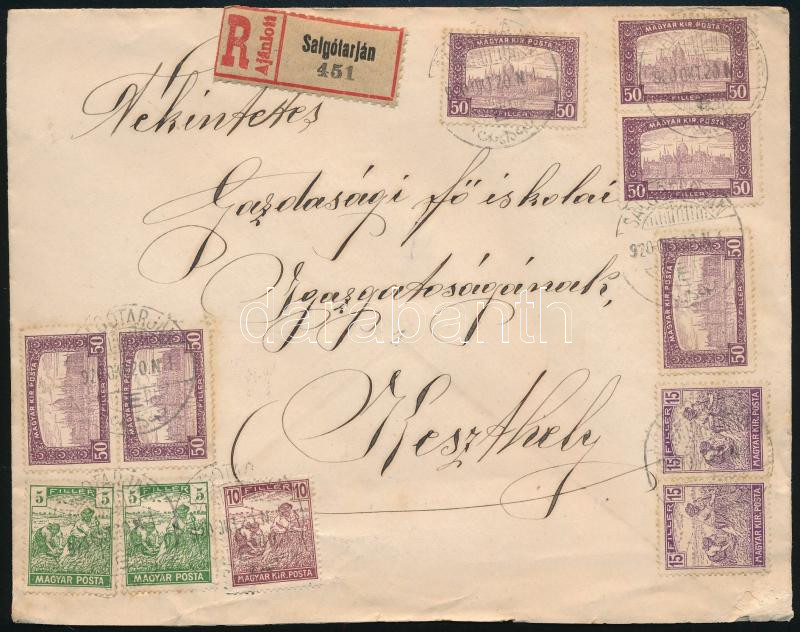 R
Ajánlott
Salgótarján
451
MAGYAR KIR. POSTA
50 50
FILLER
MAGYAR KIR. POSTA
50 50
FILLER
MAGYAR KIR. POSTA
50 50
FILLER
920 OKT. 20. N
Tekintetes
Gazdasági fő iskolai
Igazgatóságának,
Keszthely
darabanth
MAGYAR KIR. POSTA
50 50
FILLER
MAGYAR KIR. POSTA
50 50
FILLER
MAGYAR KIR. POSTA
50 50
FILLER
15 FILLER 15
MAGYAR KIR. POSTA
15 FILLER 15
MAGYAR KIR. POSTA
5 FILLER 5
MAGYAR POSTA
5 FILLER 5
MAGYAR POSTA
10 FILLER 10
MAGYAR KIR. POSTA